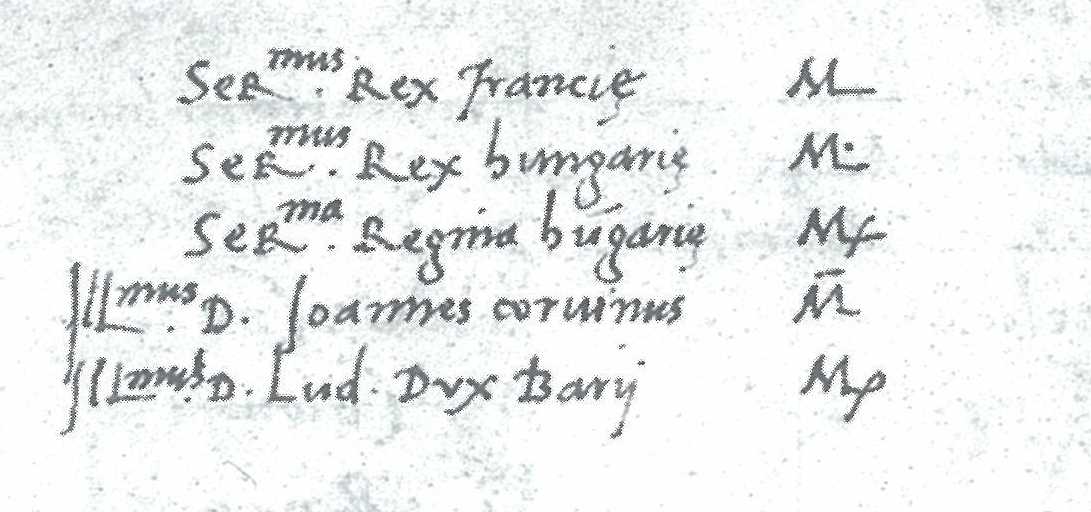 Ser^mus. Rex francię M
Ser^mus. Rex hungarię M·
Ser^ma. Regina hūgarię Mf
Ill^mus. D. Joannes coruinus M̄
Ill^mus. D. Lud. Dux Barij Mp